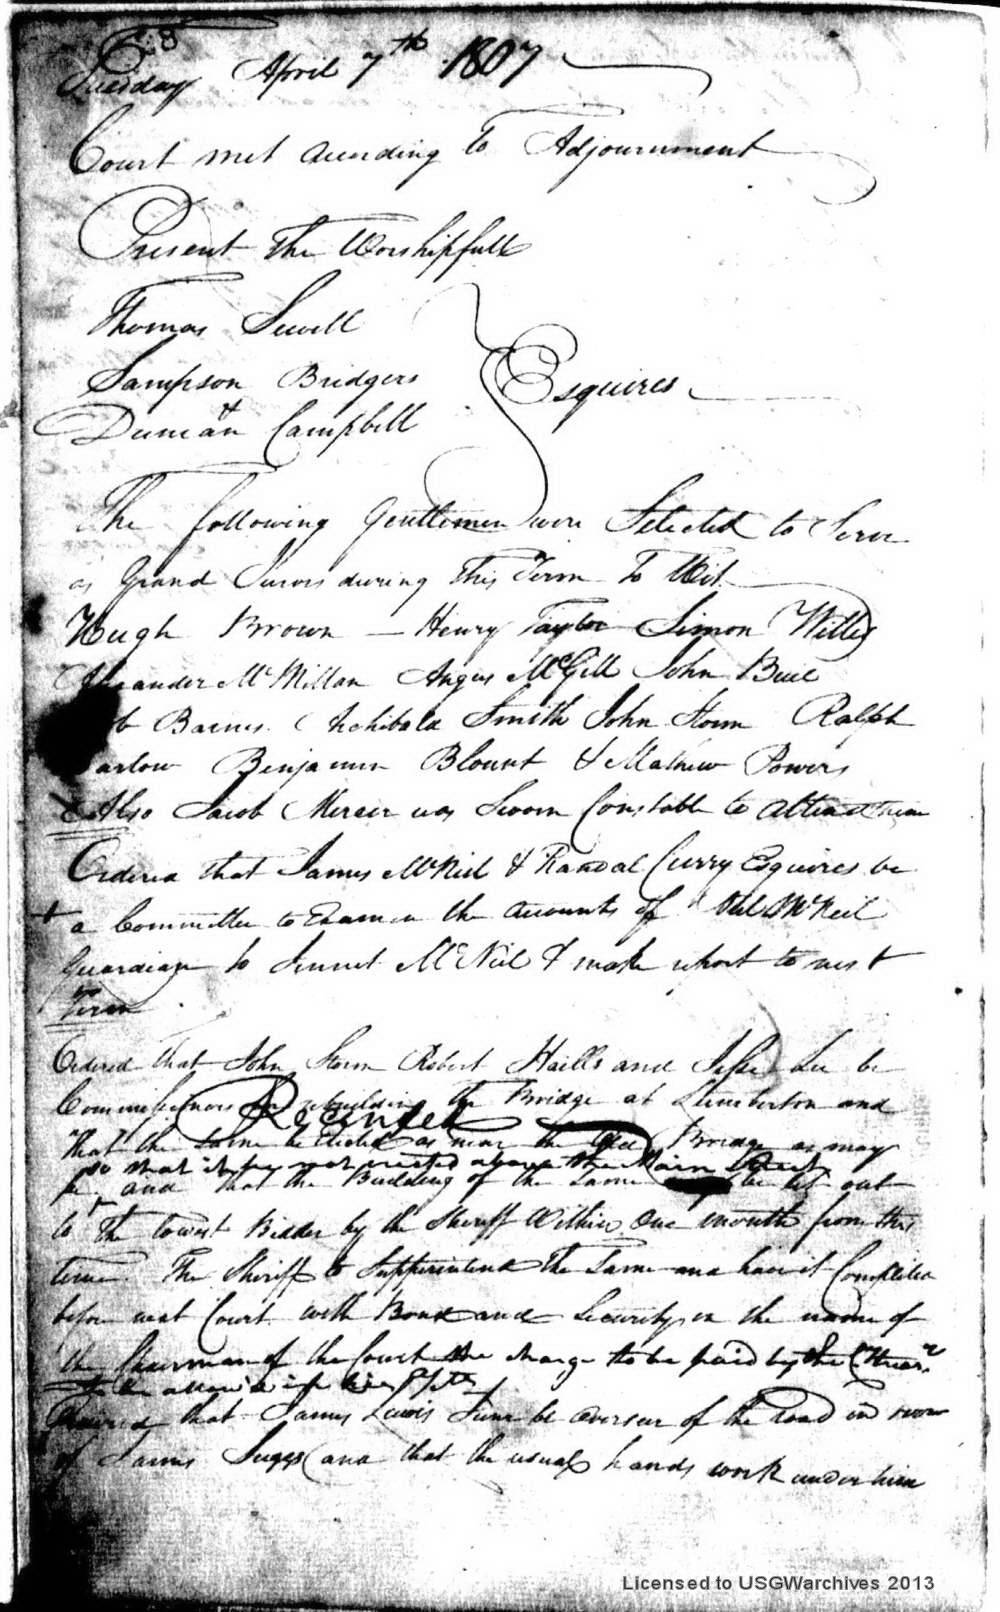 68
Tuesday April 7th 1807
Court met according to Adjournment
Present The Worshipfull
Thomas Sewell
Sampson Bridgers
&
Duncan Campbell
Esquires
The following Gentlemen were Selected to Serve
as Grand Jurors during this Term To Wit
Hugh Brown — Henry Taylor Simon Willis
Alexander McMillan Angus McGill John Buie
ob Barnes Archibald Smith John Storm Ralph
arlow Benjamin Blount & Mathew Powers
Also Jacob Mercer was Sworn Constable to attend them
Ordered that James McNeil & Randal Curry Esquires be
+ a Committee to Examin the accounts of McNeil
Guardian to Jennet McNeil & make report to next
Term
Ordered that John Storm Robert Haills and Jesse Lee be
Commissioners for rebuilding the Bridge at Lumberton and
Recinded
that the Same be Erected as near the Old Bridge as may
so that it be not erected above the Main Street
be, and that the Building of the Same be let out
to the lowest Bidder by the Sheriff Within One month from this
term The Sheriff to Supperintend the Same and have it Completed
before next Court with Bond and Security in the name of
the Chairman of the Court the charge to be paid by the
to be allow'd
Ordered that James Lewis Junr be overseer of the Road in room
of James Suggs and that the usual hands work under him
Licensed to USGWarchives 2013